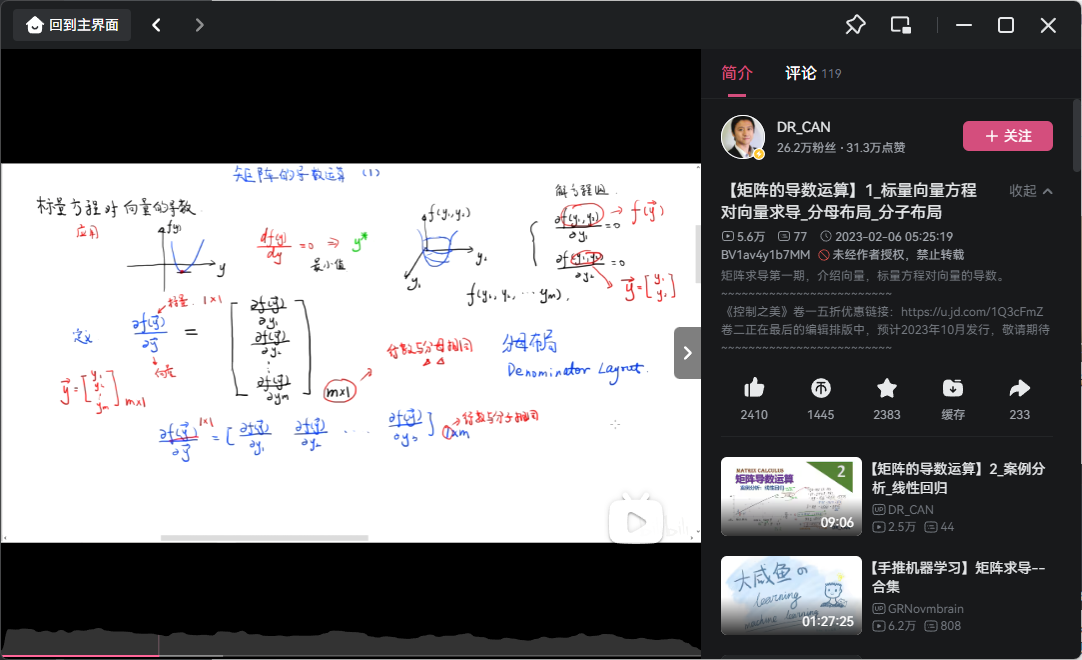 回到主界面
矩阵的导数运算 (1)
标量方程对向量的导数
应用
f(y)
y
df(y)/dy = 0 ⇒ y*
最小值
f(y₁,y₂)
y₂
y₁
解方程组
∂f(y₁,y₂)/∂y₁ = 0 → f(y⃗)
∂f(y₁,y₂)/∂y₂ = 0
y⃗ = [y₁ y₂]
f(y₁, y₂, … yₘ),
标量 1×1
定义
∂f(y⃗)/∂y⃗ =
向量
∂f(y⃗)/∂y₁
∂f(y⃗)/∂y₂
⋮
∂f(y⃗)/∂yₘ
m×1
行数与分母相同
分母布局
Denominator Layout.
y⃗ = [y₁ y₂ ⋮ yₘ] m×1
∂f(y⃗)/∂y⃗ 1×1 = [∂f(y⃗)/∂y₁ ∂f(y⃗)/∂y₂ … ∂f(y⃗)/∂y₂] 1×m
行数与分子相同
简介
评论 119
DR_CAN
26.2万粉丝 · 31.3万点赞
+ 关注
【矩阵的导数运算】1_标量向量方程
对向量求导_分母布局_分子布局
收起
5.6万 77 2023-02-06 05:25:19
BV1av4y1b7MM 未经作者授权，禁止转载
矩阵求导第一期，介绍向量，标量方程对向量的导数。
~~~~~~~~~~~~~~~~~~~~~~~~
《控制之美》卷一五折优惠链接：https://u.jd.com/1Q3cFmZ
卷二正在最后的编辑排版中，预计2023年10月发行，敬请期待
~~~~~~~~~~~~~~~~~~~~~~~~
2410 1445 2383 缓存 233
MATRIX CALCULUS
矩阵导数运算
案例分析：线性回归
2
09:06
【矩阵的导数运算】2_案例分
析_线性回归
UP DR_CAN
2.5万 44
大咸鱼の
learning
machine learning
01:27:25
【手推机器学习】矩阵求导--
合集
UP GRNovmbrain
6.2万 808